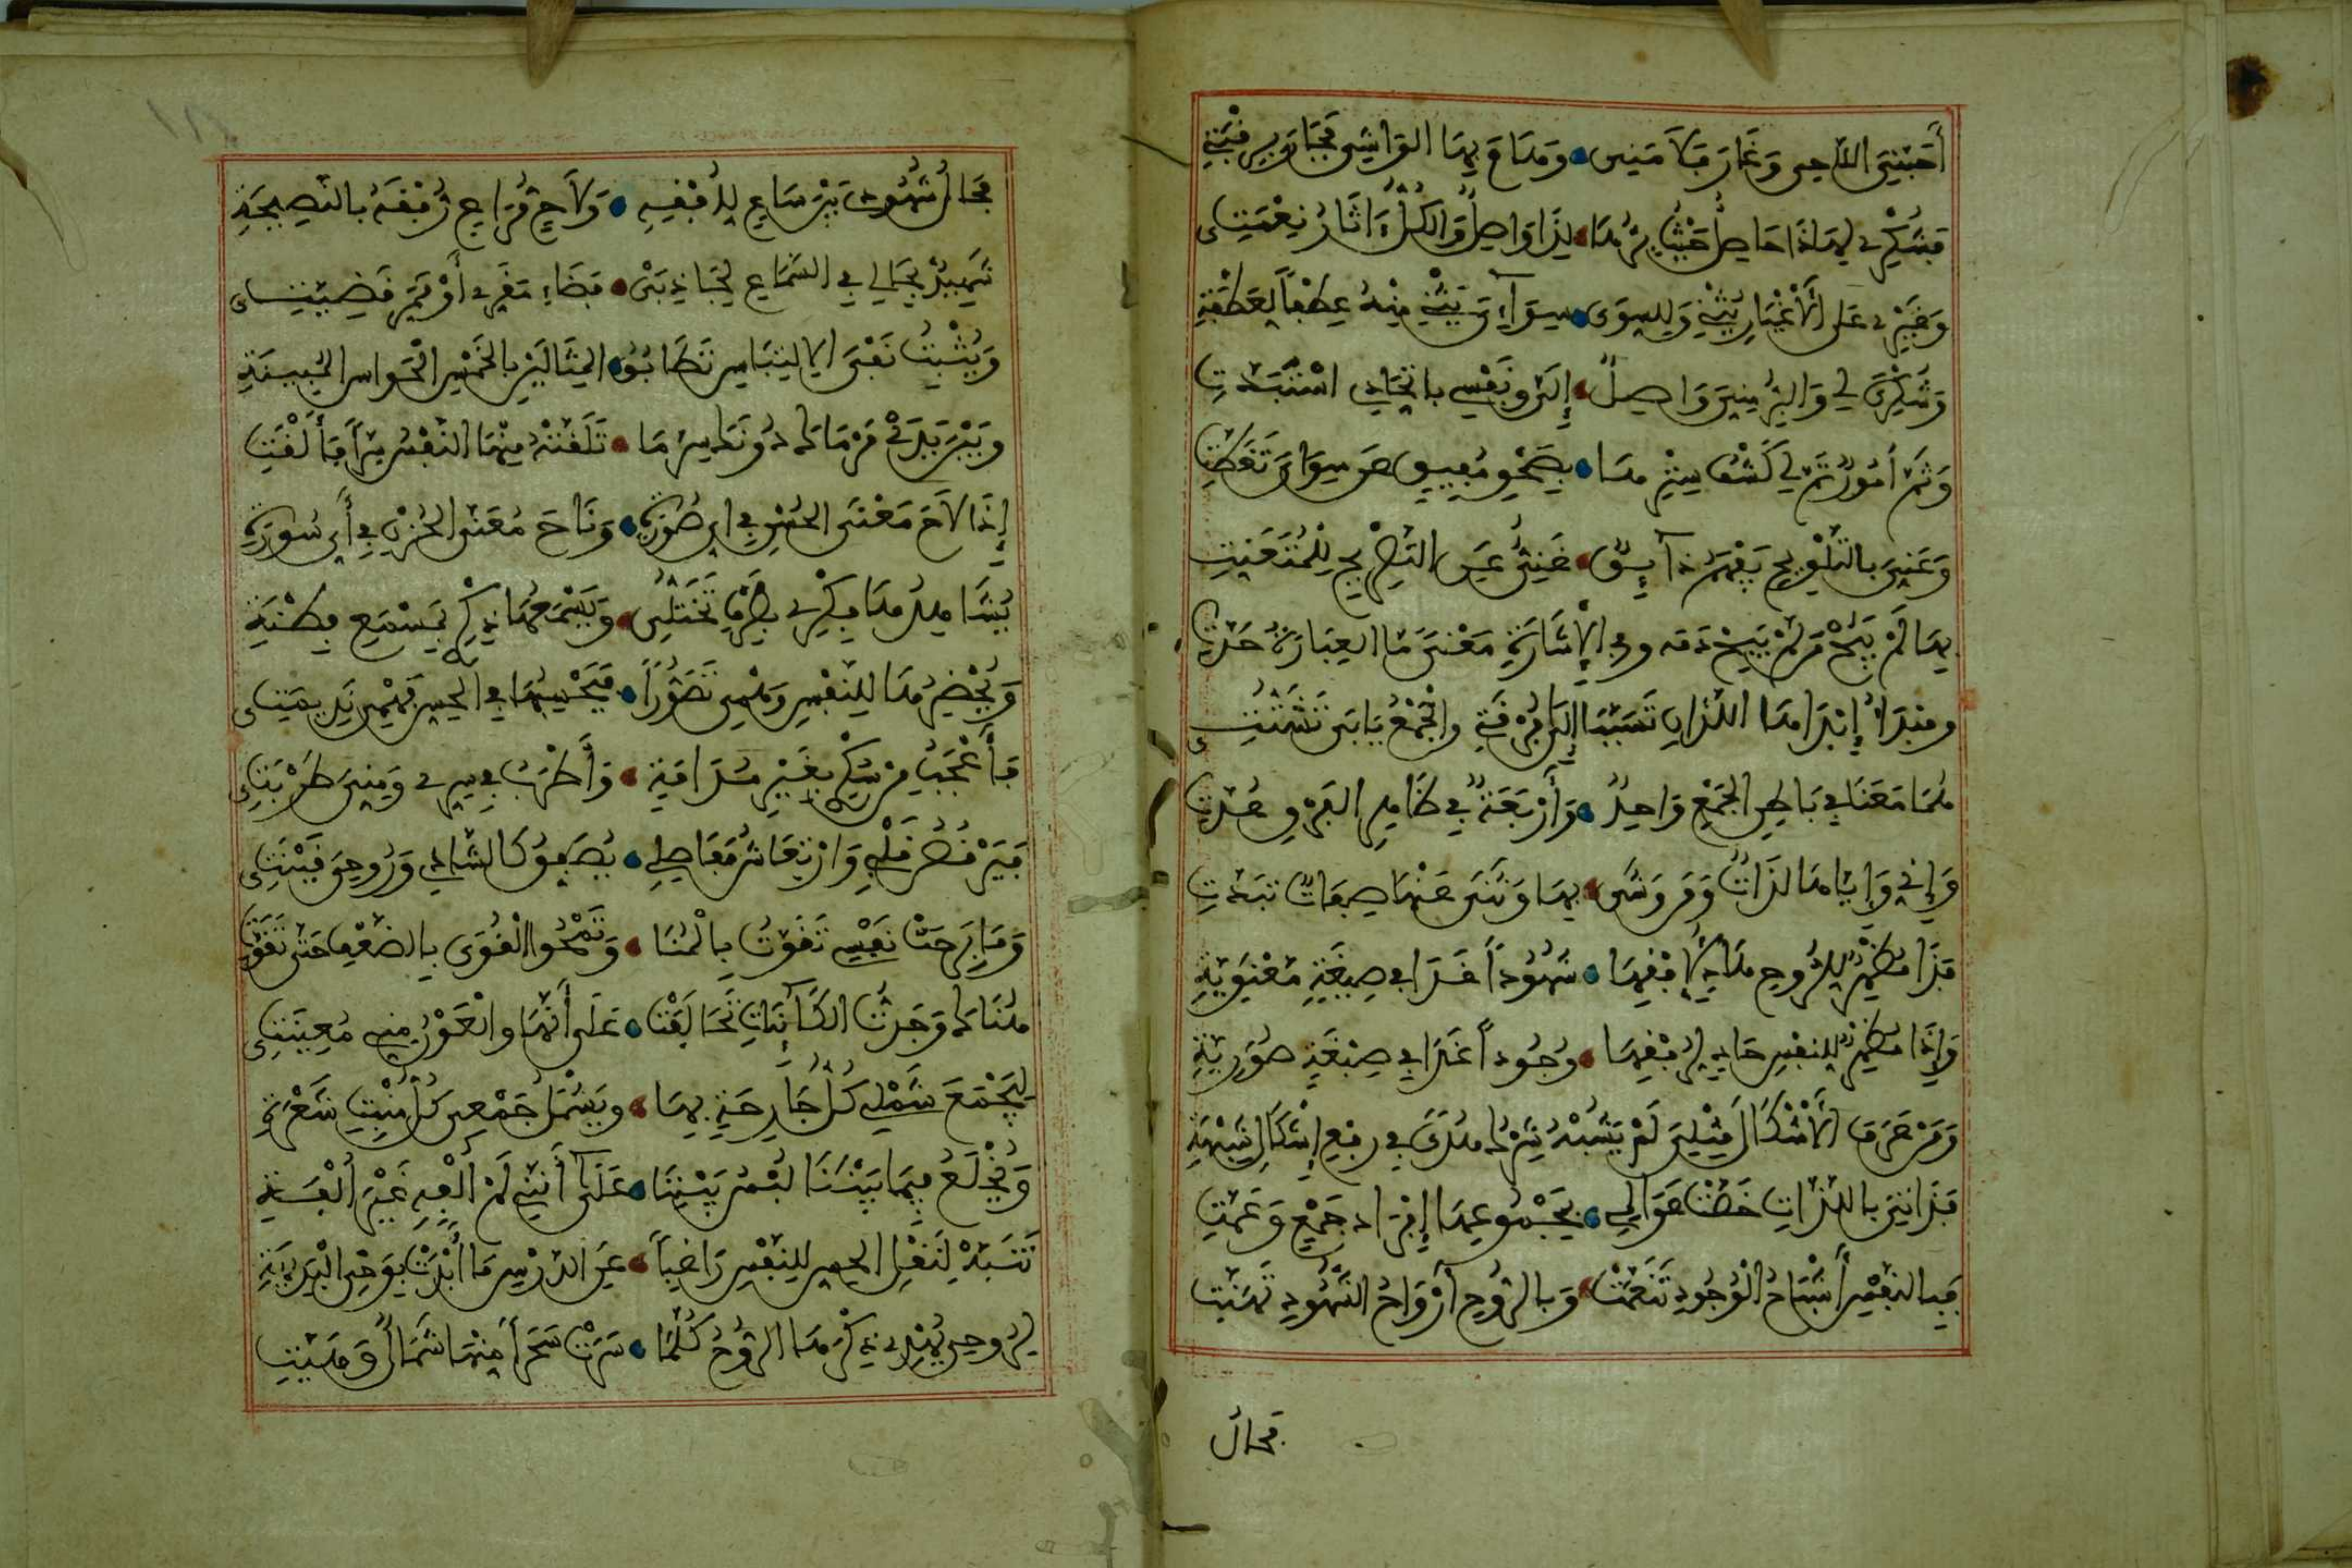 أحبني اللاحي وغار فلامني • وهام بها الواشي فجار برقبتي
فشكري لهذا حاصل حيث برها • لذا واصل والكل ءاثار نعمتي
وغيري على الأغيار يثني وللسوى • سواي يثني منه عطفا لعطفتي
وشكري لي والبر مني واصل • إلي ونفسي باتحادي استبدت
وثم أمور تم لي كشف سترها • بصحو مفيق عن سواي تغطت
وعني بالتلويح يفهم ذائق • غني عن التصريح للمتعنت
بها لم يبح من لم يبح دمه وفي الإشارة معنى ما العبارة حدت
ومبدأ إبداها اللذان تسببا إلى فرقتي والجمع يأبى تشتتي
هما معنا في باطن الجمع واحد • وأربعة في ظاهر الفرق عدت
وإني وإياها لذات ومن وشى • بها وثنى عنها صفات تبدت
فذا مظهر للروح هاد لأفقها • شهودا غدا في صيغة معنوية
وإذا مظهر للنفس حاد لرفقها • وجودا غدا في صبغة صورية
ومن عرف الأشكال مثلي لم يشبه شرك هدى في رفع إشكال شبهة
فذاتي باللذات خصت عوالمي • بمجموعها إفراد جمع وعمت
فبالنفس أشباح الوجود تنعمت • وبالروح أرواح الشهود تهنت
فحال
فحال شهودي بين ساع لأفقه • ولاح مراع رفقه بالنصيحة
شهيد بحالي في السماع لجاذبي • قضاء مقري أو ممر قضيتي
ويثبت نفي الالتباس تطابق • المثالين بالخمس الحواس المبينة
وبين يدي مرماي دونك سر ما • تلقته منها النفس سرا فألقت
إذا لاح معنى الحسن في أي صورة • وناح معنى الحزن في أي سورة
يشاهدها فكري بطرف تخيلي • ويسمعها ذكري بمسمع فطنة
ويحضرها للنفس وهمي تصورا • فيحسبها في الحس فهمي نديمتي
فأعجب من سكري بغير مدامة • وأطرب في سري ومني طربتي
فيرقص قلبي وارتعاش مفاصلي • يصفق كالشادي وروحي قينتي
وما برحت نفسي تقوت بالمنا • وتمحوا القوى بالضعف حتى تقوت
هناك وجدت الكائنات تحالفت • على أنها والعون مني معينتي
ليجمع شملي كل جارحة بها • ويشمل جمعي كل منبت شعرة
ويخلع فيما بيننا لبس بيننا • على أنني لم ألفه غير ألفة
تنبه لنقل الحس للنفس راغبا • عن الدرس ما أبدت بوحي البديهة
لروحي يهدي ذكرها الروح كلما • سرت سحرا منها شمال وهبت